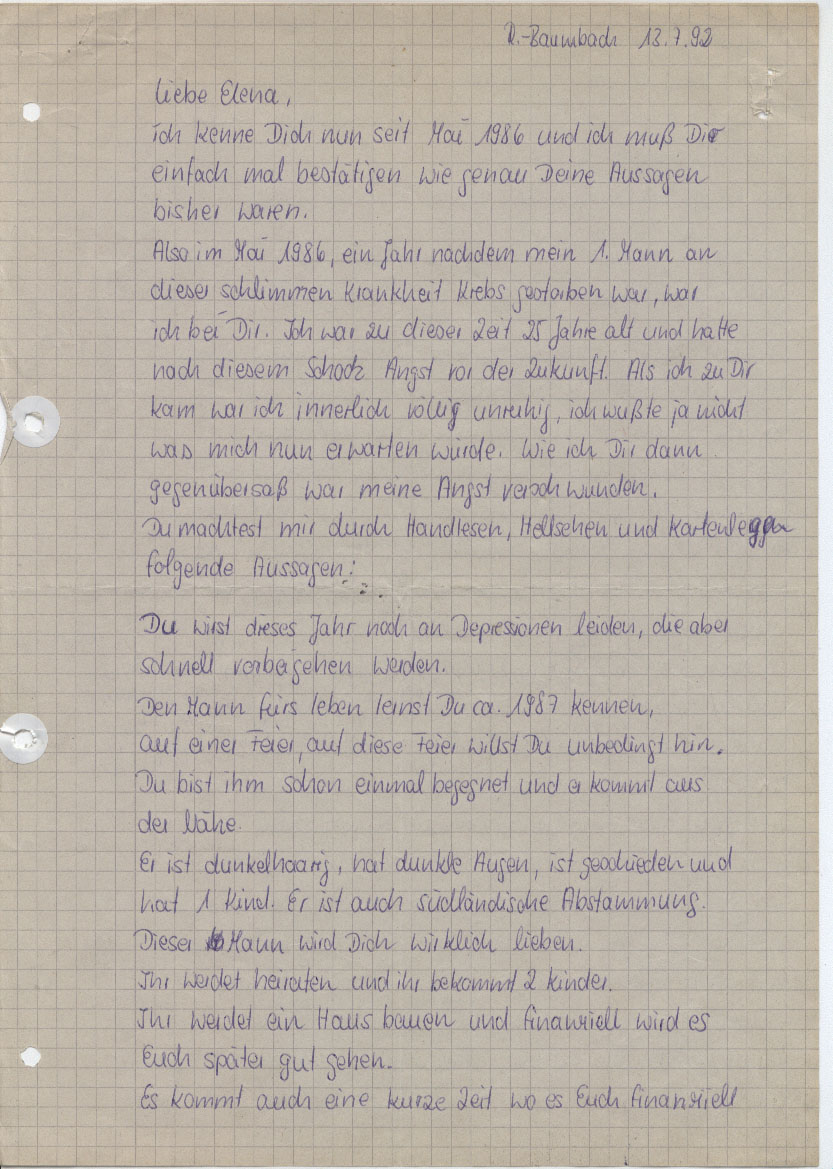 R.-Baumbach 13.7.92
liebe Elena,
ich kenne Dich nun seit Mai 1986 und ich muß Dir
einfach mal bestätigen wie genau Deine Aussagen
bisher waren.
Also im Mai 1986, ein Jahr nachdem mein 1. Mann an
dieser schlimmen Krankheit Krebs gestorben war, war
ich bei Dir. Ich war zu dieser Zeit 25 Jahre alt und hatte
nach diesem Schock Angst vor der Zukunft. Als ich zu Dir
kam war ich innerlich völlig unruhig, ich wußte ja nicht
was mich nun erwarten würde. Wie ich Dir dann
gegenübersaß war meine Angst verschwunden.
Du machtest mir durch Handlesen, Hellsehen und Kartenlegen
folgende Aussagen:
Du wirst dieses Jahr noch an Depressionen leiden, die aber
schnell vorbeigehen werden.
Den Mann fürs leben lernst Du ca. 1987 kennen,
auf einer Feier, auf diese Feier willst Du unbedingt hin.
Du bist ihm schon einmal begegnet und er kommt aus
der Nähe.
Er ist dunkelhaarig, hat dunkle Augen, ist geschieden und
hat 1 Kind. Er ist auch südländische Abstammung.
Dieser Mann wird Dich wirklich lieben.
Ihr werdet heiraten und ihr bekommt 2 Kinder.
Ihr werdet ein Haus bauen und finanziell wird es
Euch später gut gehen.
Es kommt auch eine kurze Zeit wo es Euch finanziell